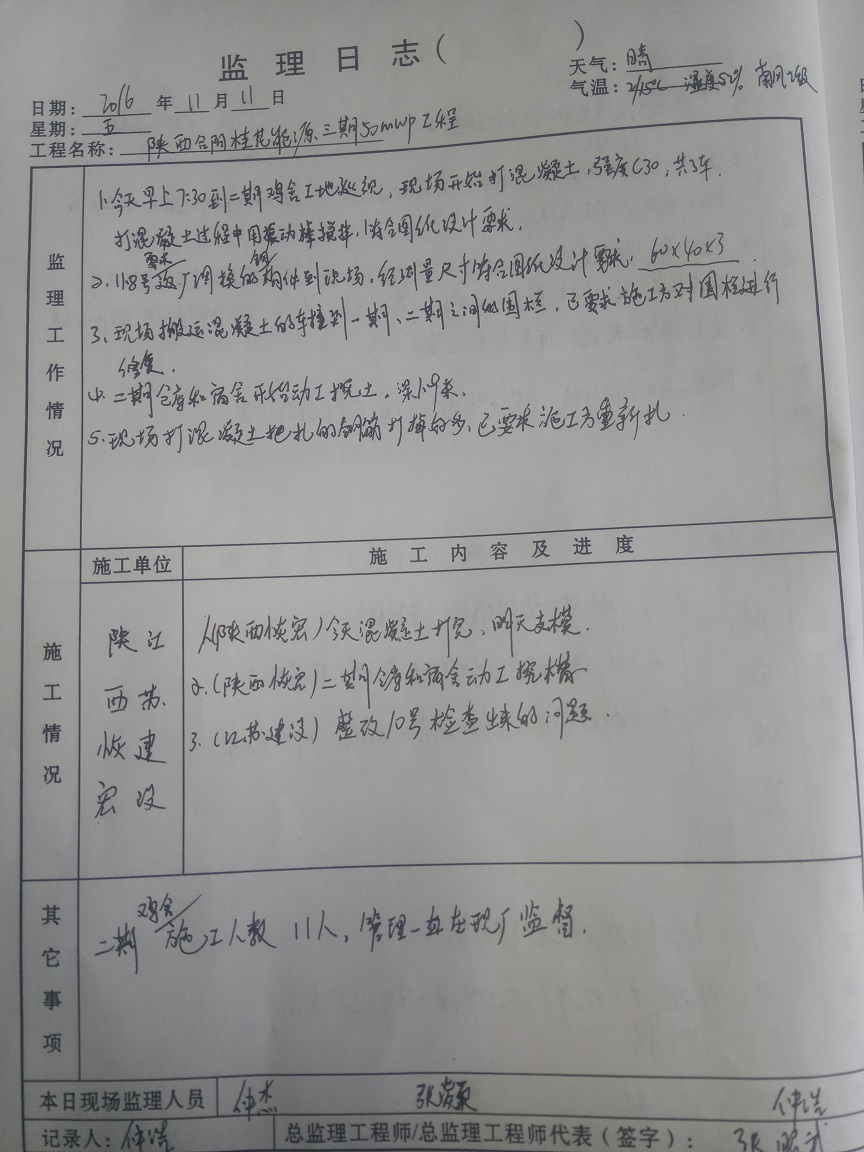 监理日志( )
天气:晴
日期:2016年11月11日
气温:2/15℃ 湿度52% 南风2级
星期:五
工程名称:陕西合阳桂花能源三期50mwp工程
监理工作情况
1.今天早上7:30到二期鸡舍工地巡视,现场开始打混凝土,强度C30,共3车.
打混凝土过程中用振动棒搅拌,符合图纸设计要求.
要求 钢
2、118号返厂调换的构件到现场,经测量尺寸符合图纸设计要求,60×40×3.
3、现场搬运混凝土的车撞到一期、二期之间的围栏,已要求施工方对围栏进行
修复.
4.二期仓库和宿舍开始动工挖土,深1.9米.
5.现场打混凝土把扎的钢筋打掉的多,已要求施工方重新扎.
施工情况
施工单位
施工内容及进度
陕西恢宏
江苏建设
1.(陕西恢宏)今天混凝土打完,明天支模.
2.(陕西恢宏)二期仓库和宿舍动工挖槽
3.(江苏建设)整改10号检查出来的问题.
其它事项
鸡舍
二期施工人数11人,管理一直在现厂监督.
本日现场监理人员 仲杰 张 仲浩
记录人:仲浩 总监理工程师/总监理工程师代表(签字): 张